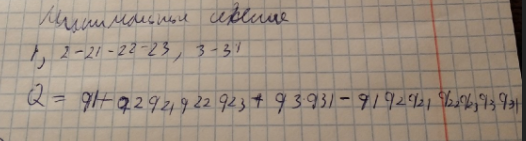 Минимальные сечение
1, 2-21-22-23, 3-31
Q = q1+q2q21q22q23+q3q31-q1q2q21q22q23q3q31